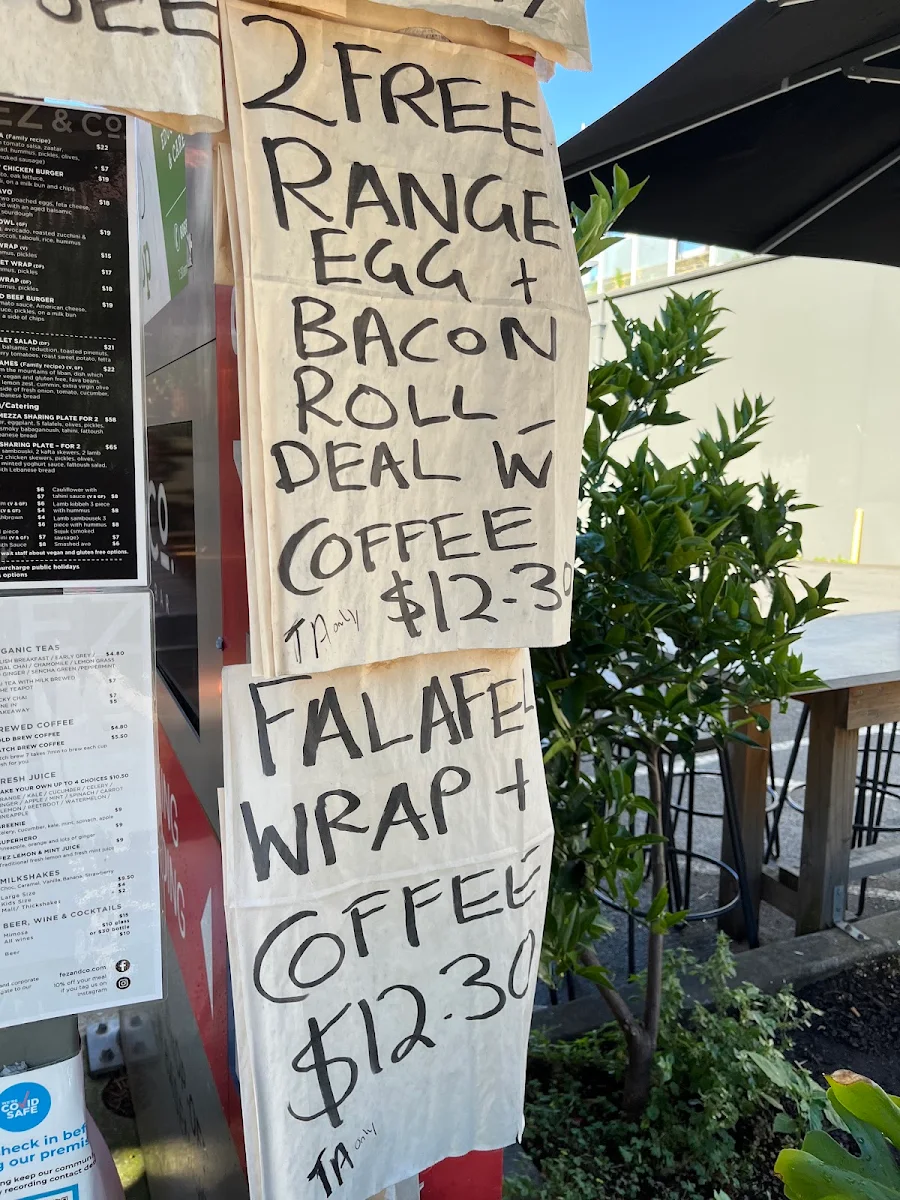 2 FREE
RANGE
EGG +
BACON
ROLL
DEAL W
COFFEE
TA only $12.30
FALAFEL
WRAP +
COFFEE
$12.30
TA only
EZ & CO
(Family recipe) $22
tomato salsa, zaatar,
hummus, pickles, olives,
smoked sausage) + $7
CHICKEN BURGER $19
oak lettuce,
on a milk bun and chips
AVO $18
two poached eggs, feta cheese
with an aged balsamic
sourdough
$19
avocado, roasted zucchini &
tabouli, rice, hummus
WRAP (V) $15
pickles
$17
hummus, pickles
WRAP (DF) $18
pickles
BEEF BURGER $19
tomato sauce, American cheese,
pickles, on a milk bun
a side of chips
SALAD (DF) $21
balsamic reduction, toasted pinenuts,
tomatoes, roast sweet potato, fetta
(Family recipe) (V, GF) $22
the mountains of liban, dish which
vegan and gluten free, fava beans,
lemon zest, cummin, extra virgin olive
side of fresh onion, tomato, cucumber,
Lebanese bread
/Catering
MEZZA SHARING PLATE FOR 2 $58
eggplant, 5 falafels, olives, pickles,
smoky babaganoush, tahini, fattoush
Lebanese bread
SHARING PLATE - FOR 2 $65
sambouski, 2 kafta skewers, 2 lamb
2 chicken skewers, pickles, olives,
minted yoghurt sauce, fattoush salad,
with Lebanese bread
$6 Cauliflower with
$7 tahini sauce (V & GF) $8
$6 Lamb kibbeh 3 piece
$4 with hummus $8
$4 Lamb sambousek 3
$8 piece with hummus $8
Sujuk (smoked
$7 sausage) $7
$8 Smashed avo $6
staff about vegan and gluten free options.
surcharge public holidays
options
CO.
ORGANIC TEAS
ENGLISH BREAKFAST / EARL GREY / $4.80
CHAI / CHAMOMILE / LEMON GRASS
GINGER / SENCHA GREEN / PEPPERMINT
TEA WITH MILK BREWED $7
THE TEAPOT
CHAI $7
DINE IN $5
TAKEAWAY
BREWED COFFEE
COLD BREW COFFEE $4.80
BATCH BREW COFFEE $5.50
FRESH JUICE
MAKE YOUR OWN UP TO 4 CHOICES $10.50
ORANGE / KALE / CUCUMBER / CELERY /
GINGER / APPLE / MINT / SPINACH / CARROT
LEMON / BEETROOT / WATERMELON /
PINEAPPLE
GREENIE $9
celery, cucumber, kale, mint, spinach, apple
SUPERHERO $9
Pineapple, orange and lots of ginger
FEZ LEMON & MINT JUICE $9
Traditional fresh lemon and fresh mint juice
MILKSHAKES
Choc, Caramel, Vanilla, Banana, Strawberry
Large Size $9.50
Kids Size $6
Malt/ Thickshakes + $2
BEER, WINE & COCKTAILS
Mimosa $15
All wines $10 glass
or $30 bottle
Beer $10
fezandco.com
10% off your meal
if you tag us on
instagram
and corporate
WE'RE
COVID
SAFE
check in bef
g our premis
keep our commun
recording contact de